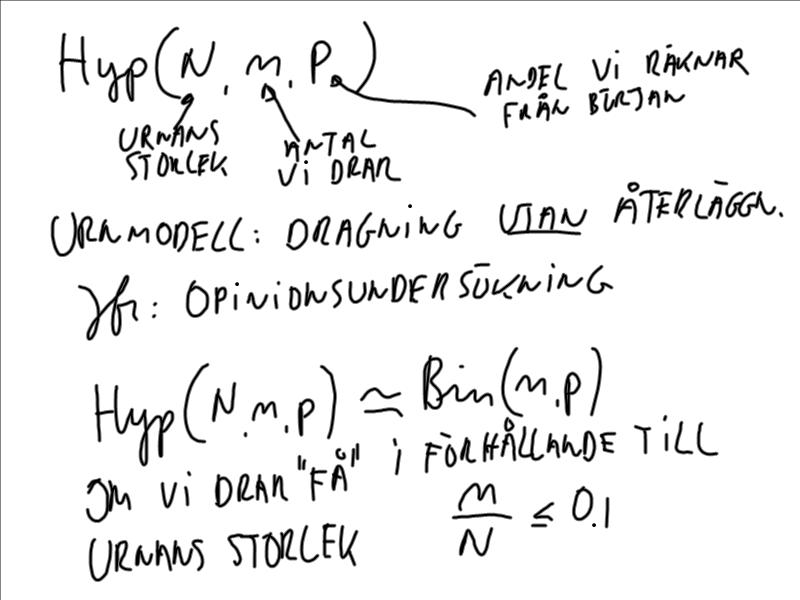 Hyp(N, n, p)
ANDEL VI RÄKNAR
FRÅN BÖRJAN
URNANS
STORLEK
ANTAL
VI DRAR
URNMODELL: DRAGNING UTAN ÅTERLÄGGN.
Jfr: OPINIONSUNDERSÖKNING
Hyp(N, n, p) ≃ Bin(n, p)
OM VI DRAR "FÅ" I FÖRHÅLLANDE TILL
URNANS STORLEK n/N ≤ 0.1